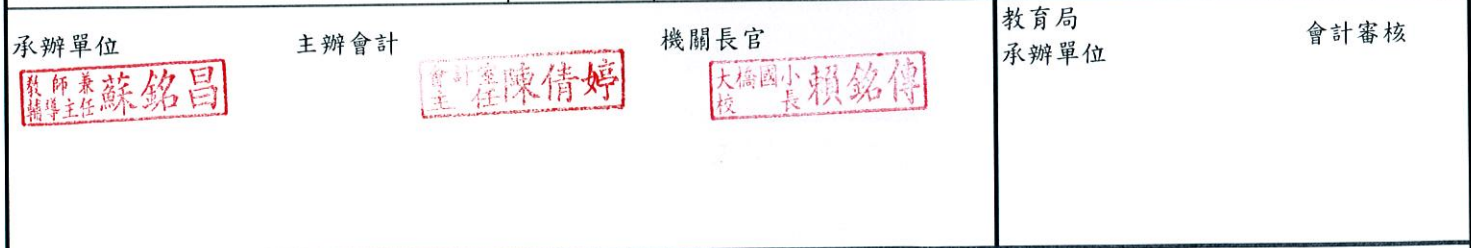 承辦單位
主辦會計
機關長官
教師兼
輔導主任
蘇銘昌
會計室
主任
陳倩婷
大橋國小
校長
賴銘傳
教育局
承辦單位
會計審核